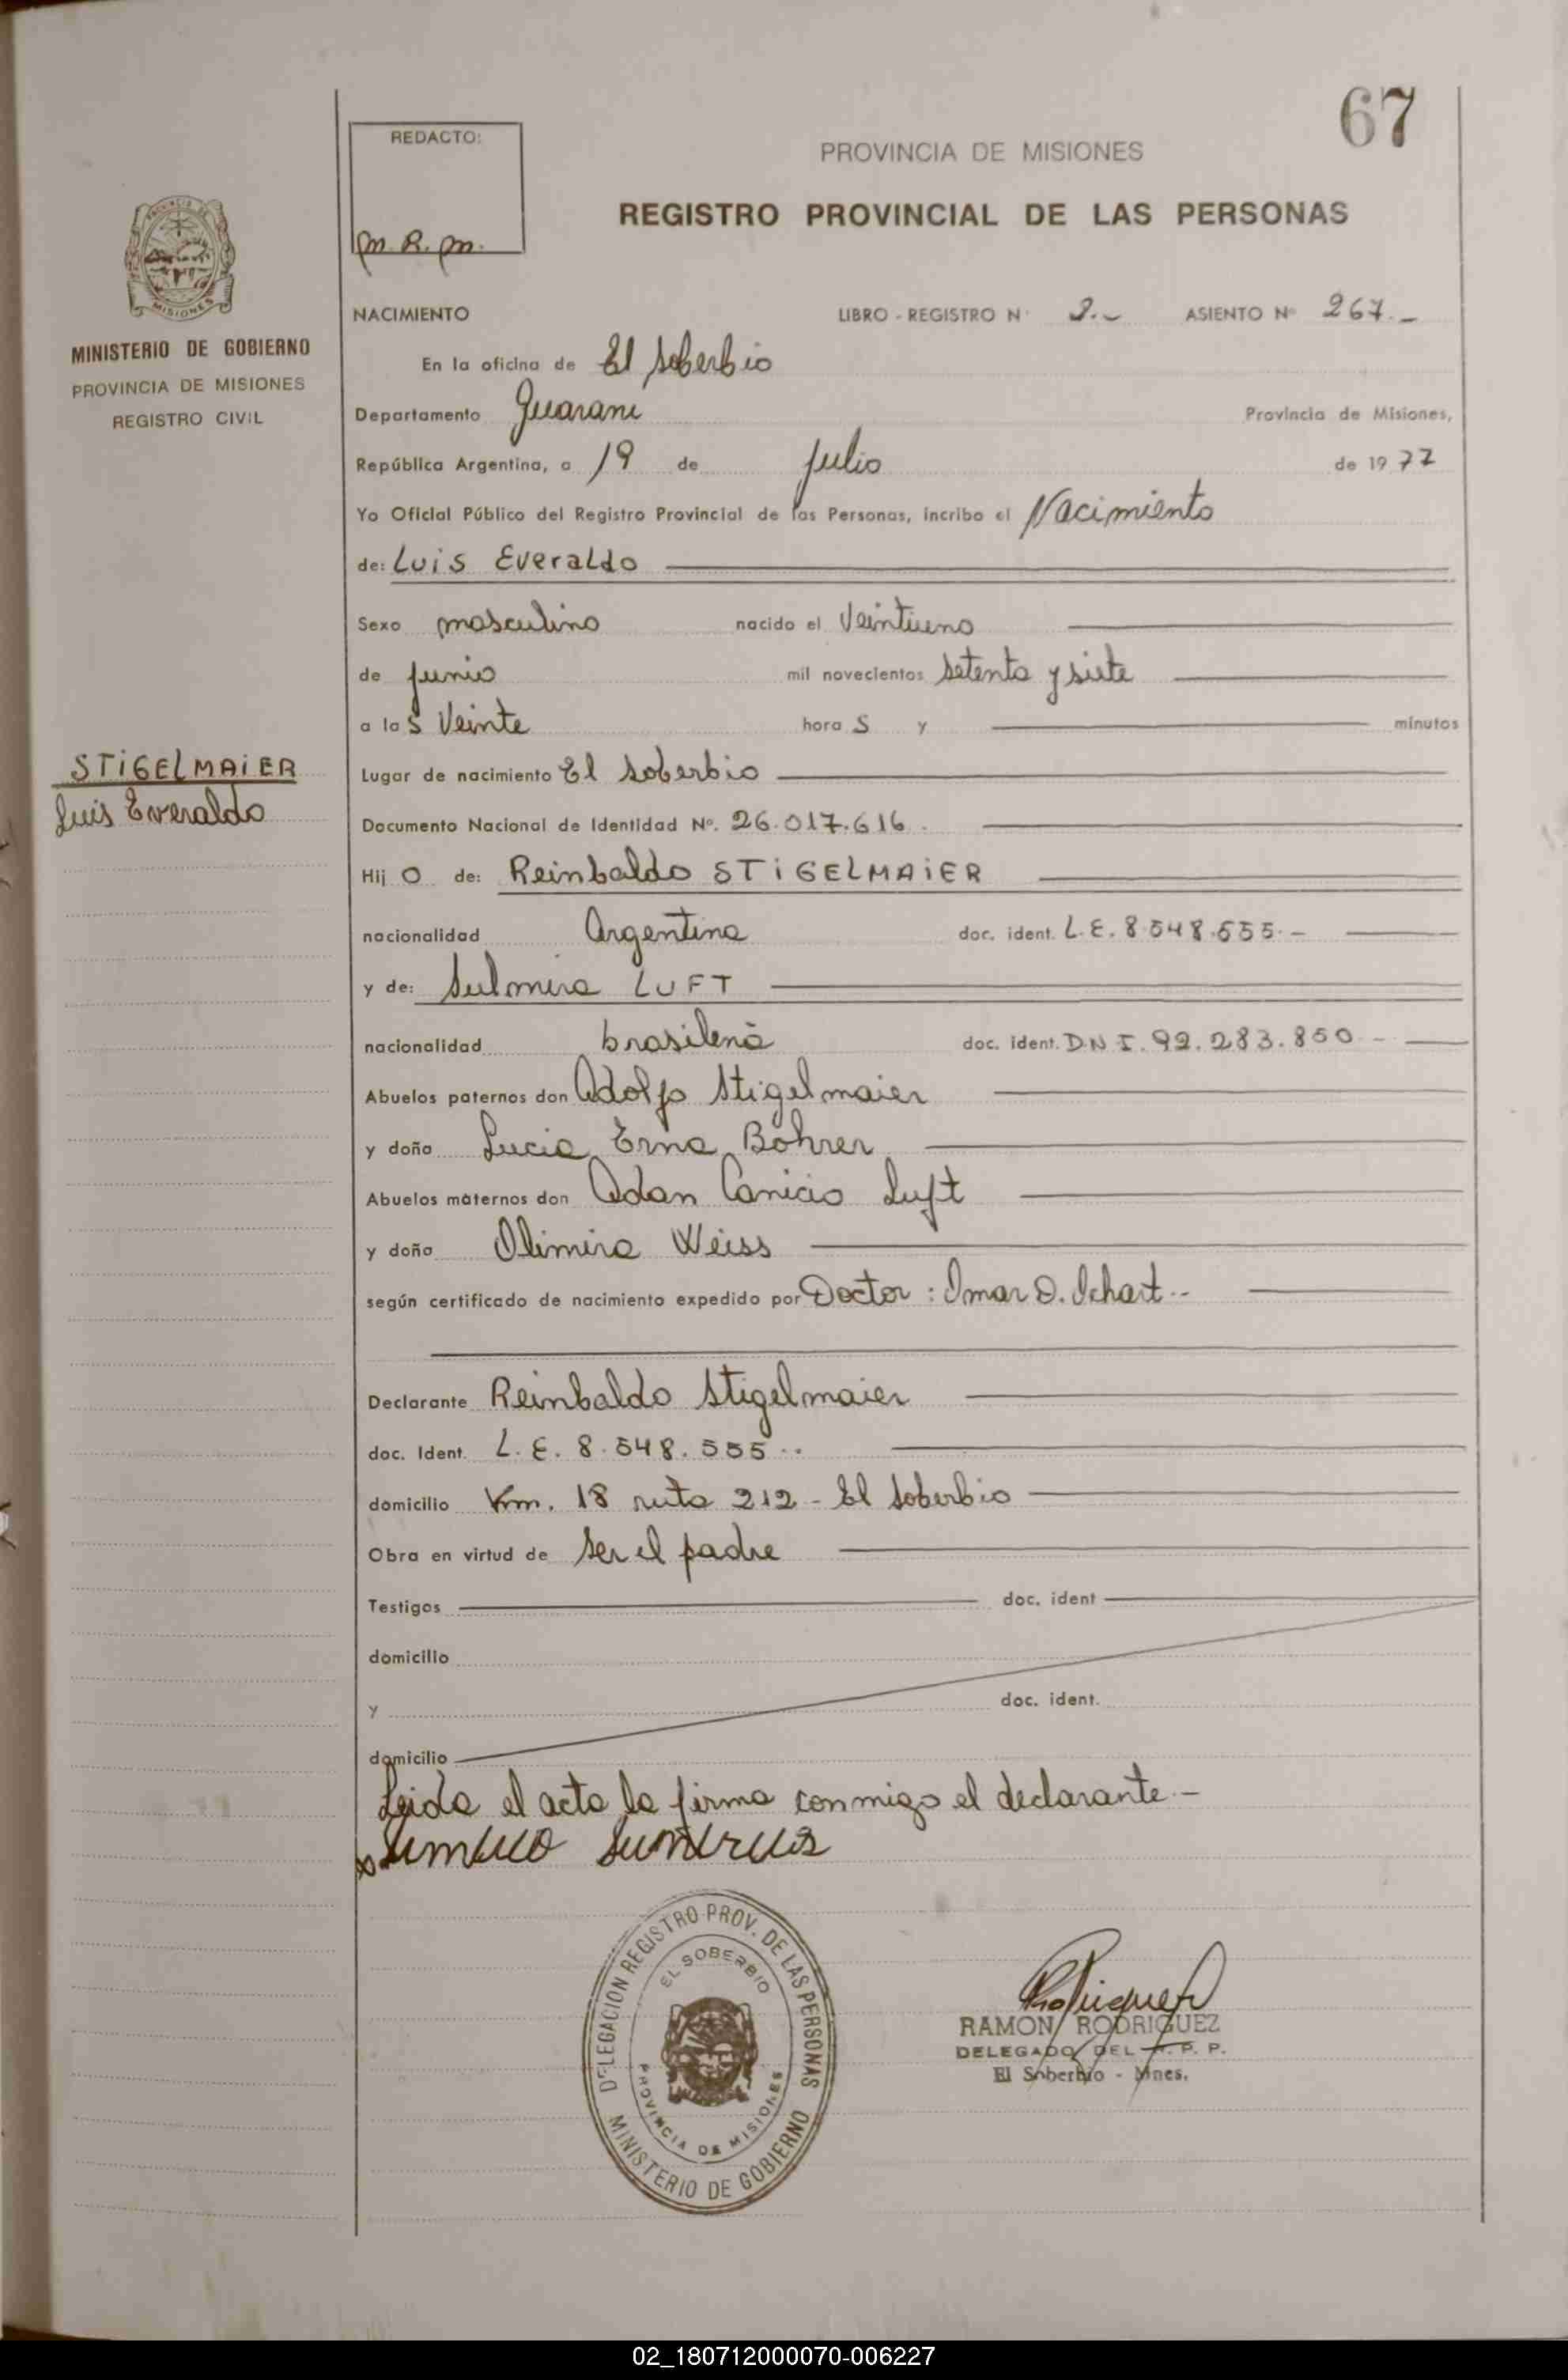 67
REDACTO:
M. R. M.
PROVINCIA DE MISIONES
REGISTRO PROVINCIAL DE LAS PERSONAS
PROVINCIA DE
MISIONES
MINISTERIO DE GOBIERNO
PROVINCIA DE MISIONES
REGISTRO CIVIL
NACIMIENTO LIBRO - REGISTRO N° 2.- ASIENTO N° 267.-
En la oficina de El Soberbio
Departamento Guaraní Provincia de Misiones,
República Argentina, a 19 de Julio de 1977
Yo Oficial Público del Registro Provincial de las Personas, incribo el Nacimiento
de: Luis Everaldo
Sexo masculino nacido el Veintiuno
de Junio mil novecientos Setenta y siete
a las Veinte horas y minutos
STIGELMAIER
Luis Everaldo
Lugar de nacimiento El Soberbio
Documento Nacional de Identidad N°. 26.017.616.
Hijo de: Reinbaldo STIGELMAIER
nacionalidad Argentina doc. ident. L.E. 8.548.555.-
y de: Sulmira LUFT
nacionalidad brasilena doc. ident. DNI. 92.283.850.-
Abuelos paternos don Adolfo Stigelmaier
y doña Lucia Erna Bohrer
Abuelos maternos don Adan Canicio Luft
y doña Olimira Weiss
según certificado de nacimiento expedido por Doctor: Omar O. Ichart.-
Declarante Reinbaldo Stigelmaier
doc. Ident. L.E. 8.548.555..
domicilio Km. 18 ruta 212 - El Soberbio
Obra en virtud de ser el padre
Testigos doc. ident
domicilio
y doc. ident.
domicilio
Leida el acta la firma conmigo el declarante.-
DELEGACION REGISTRO PROV. DE LAS PERSONAS
EL SOBERBIO
PROVINCIA DE MISIONES
MINISTERIO DE GOBIERNO
Rodriguez
RAMON RODRIGUEZ
DELEGADO DEL R. P. P.
El Soberbio - Mnes.
02_180712000070-006227